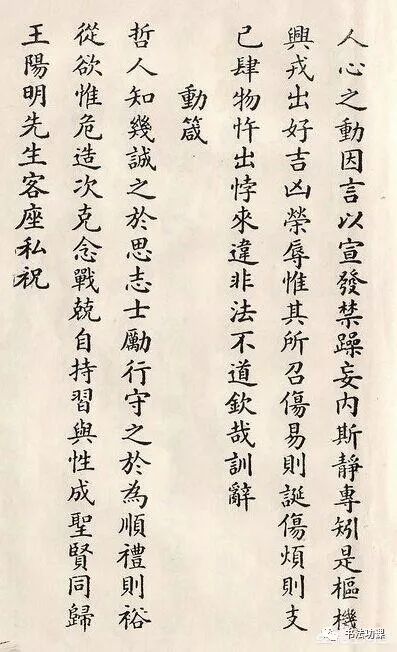 人心之動因言以宣發禁躁妄內斯靜專矧是樞機
興戎出好吉凶榮辱惟其所召傷易則誕傷煩則支
己肆物忤出悖來違非法不道欽哉訓辭
動箴
哲人知幾誠之於思志士勵行守之於為順禮則裕
從欲惟危造次克念戰兢自持習與性成聖賢同歸
王陽明先生客座私祝
书法功课